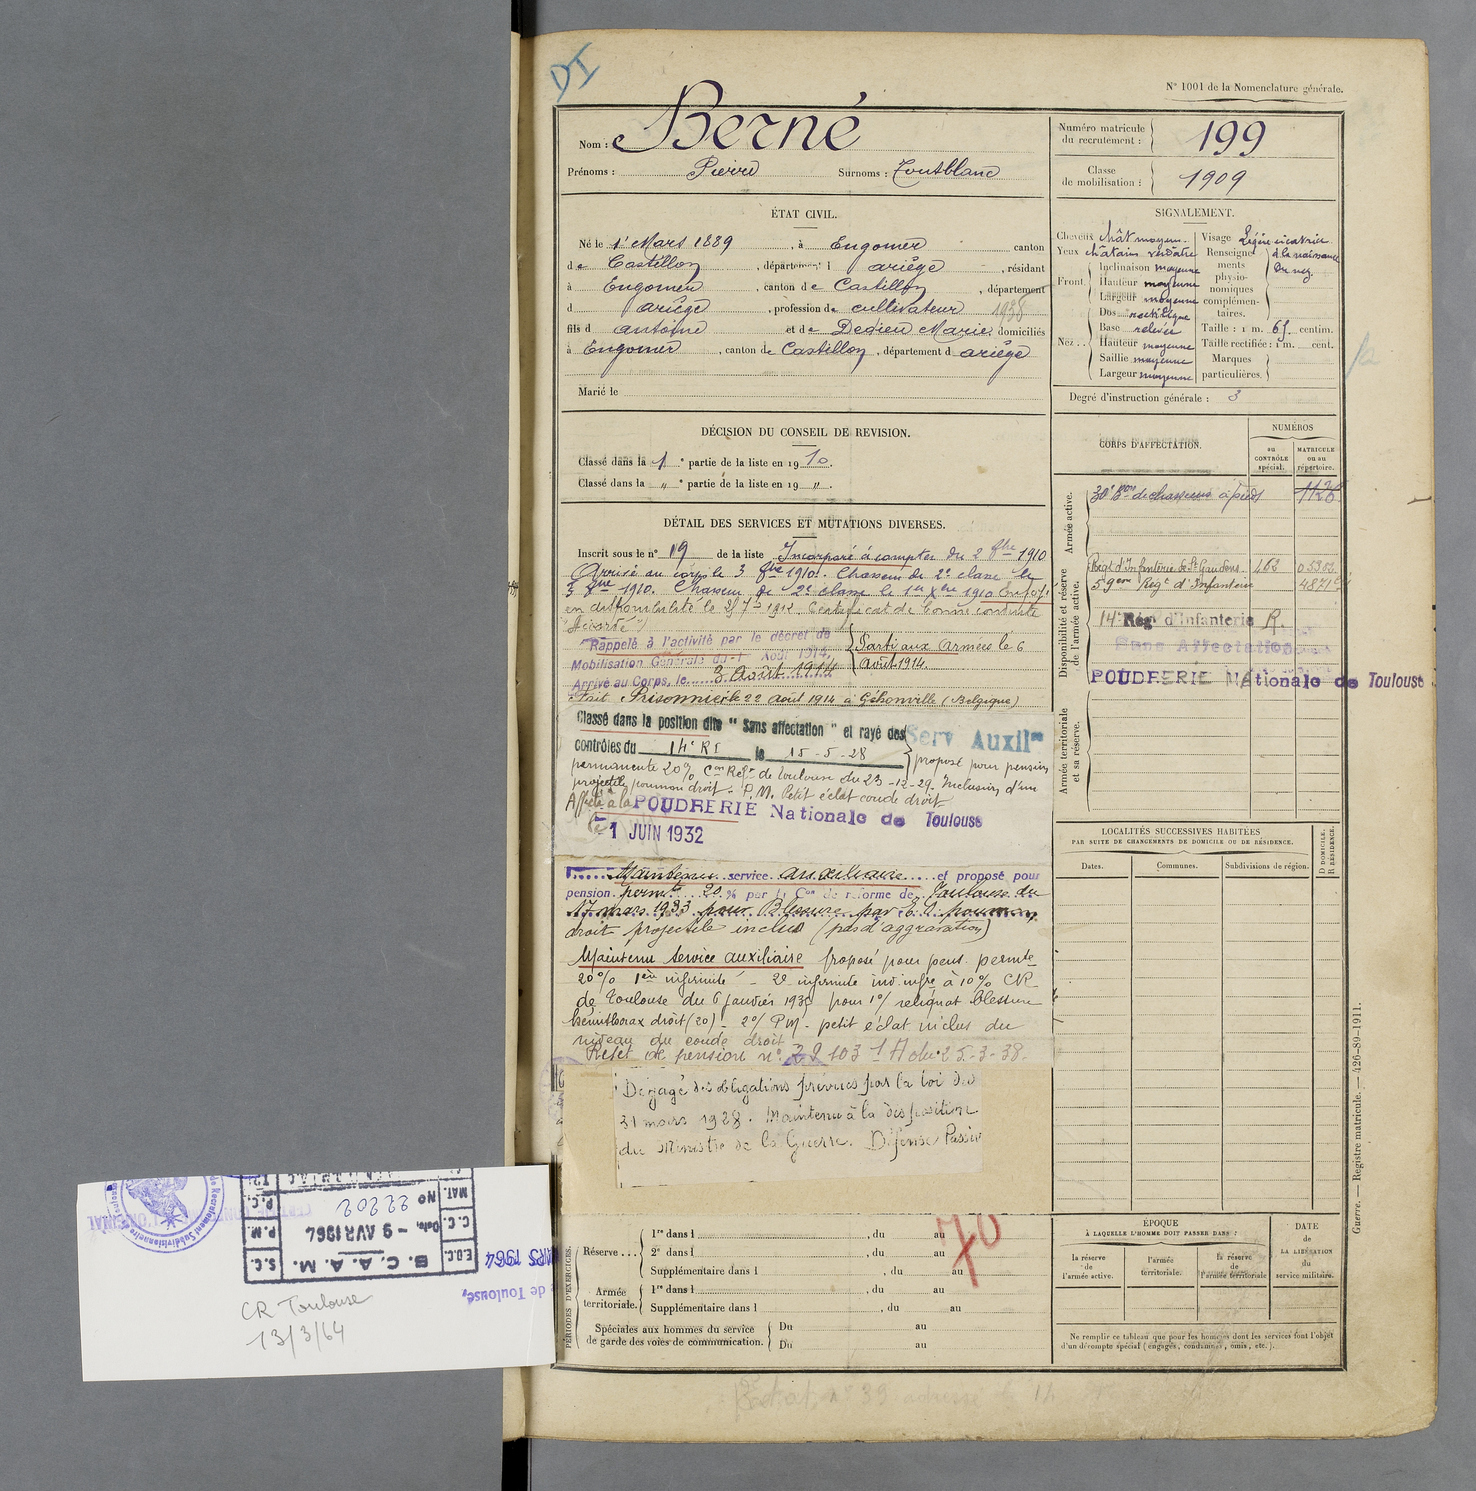 DI
N° 1001 de la Nomenclature générale.
Nom : Berné
Prénoms : Pierre Surnoms : Toutblanc
Numéro matricule du recrutement : 199
Classe de mobilisation : 1909
ÉTAT CIVIL.
Né le 1er Mars 1889, à Engomer canton
de Castillon, département d ariège, résidant
à Engomer, canton de Castillon, département
d ariège, profession de cultivateur 1938
fils d antoine et de Dedieu Marie domiciliés
à Engomer, canton de Castillon, département d ariège
Marié le
SIGNALEMENT.
Cheveux chât moyen.
Yeux châtain verdâtre
Front. Inclinaison moyenne
Hauteur moyenne
Largeur moyenne
Nez.. Dos rectiligne
Base relevée
Hauteur moyenne
Saillie moyenne
Largeur moyenne
Visage Légère cicatrice
Renseignements physionomiques complémentaires. à la naissance du nez.
Taille : 1 m. 65 centim.
Taille rectifiée : 1 m. cent.
Marques particulières.
Degré d'instruction générale : 3
DÉCISION DU CONSEIL DE REVISION.
Classé dans la 1e partie de la liste en 1910.
Classé dans la " e partie de la liste en 19 ".
DÉTAIL DES SERVICES ET MUTATIONS DIVERSES.
Inscrit sous le n° 19 de la liste Incorporé à compter du 2 8bre 1910
Arrivé au corps le 3 8bre 1910. Chasseur de 2e classe le
3 8bre 1910. Chasseur de 2e classe le 1er Xbre 1910 Envoyé
en disponibilité le 25 7bre 1912 Certificat de bonne conduite
"Accordé"
Rappelé à l'activité par le décret de
Mobilisation Générale du 1 Août 1914.
Arrivé au Corps, le 3 Août 1914
Parti aux Armées le 6
Août 1914.
Fait Prisonnier le 22 août 1914 à Géhonville (Belgique)
Classé dans la position dite "Sans affectation" et rayé des
contrôles du 14e RI le 15-5-28
Serv Auxilre
proposé pour pension
permanente 20% Con Refe de Toulouse du 23-12-29. Inclusion d'un
projectile poumon droit. P.M. Petit éclat coude droit
Affecté à la POUDRERIE Nationale de Toulouse
le 1 JUIN 1932
Maintenu service auxiliaire et proposé pour
pension permte 20 % par la Con de réforme de Toulouse du
17 mars 1933 pour Blessure par E.O. poumon
droit projectile inclus (pas d'aggravation)
Maintenu Service auxiliaire proposé pour pens. permte
20% 1ère infirmité - 2e infirmité ind. infre à 10% CR
de Toulouse du 6 janvier 1938 pour 1°/ reliquat blessure
hémithorax droit (20) - 2°/ PM - petit éclat inclus au
niveau du coude droit
de pension n° 22103 1 A du 25-3-38.
Dégagé des obligations prévues par la loi du
31 mars 1928. Maintenu à la disposition
du Ministre de la Guerre. Défense Passive
CORPS D'AFFECTATION.
NUMÉROS
au CONTRÔLE spécial.
MATRICULE ou au répertoire.
Armée active.
30e Bon de chasseurs à pieds 1126
Disponibilité et réserve de l'armée active.
Régt d'Infanterie de St Gaudens. 463 05302
59ème Régt d'Infanterie 4871
14e Régt d'Infanterie R.
Sans Affectation
POUDRERIE Nationale de Toulouse
Armée territoriale et sa réserve.
LOCALITÉS SUCCESSIVES HABITÉES
PAR SUITE DE CHANGEMENTS DE DOMICILE OU DE RÉSIDENCE.
Dates. Communes. Subdivisions de région. D DOMICILE. R RÉSIDENCE.
PÉRIODES D'EXERCICES.
Réserve... 1re dans l , du au
2e dans l , du au
Supplémentaire dans l , du au
Armée territoriale. 1re dans l , du au
Supplémentaire dans l , du au
Spéciales aux hommes du service de garde des voies de communication. Du au
Du au
70
ÉPOQUE
À LAQUELLE L'HOMME DOIT PASSER DANS :
la réserve de l'armée active. l'armée territoriale. la réserve de l'armée territoriale
DATE de LA LIBÉRATION du service militaire.
Ne remplir ce tableau que pour les hommes dont les services font l'objet
d'un décompte spécial (engagés, condamnés, omis, etc.).
Guerre. — Registre matricule. — 426-89-1911.
B. C. A. A. M.
Date, - 9 AVR 1964
N° 22202
E.O.C. C.C. MAT.
S.C. P.M. P.C.
MARS 1964
de Toulouse,
CR Toulouse
13/3/64